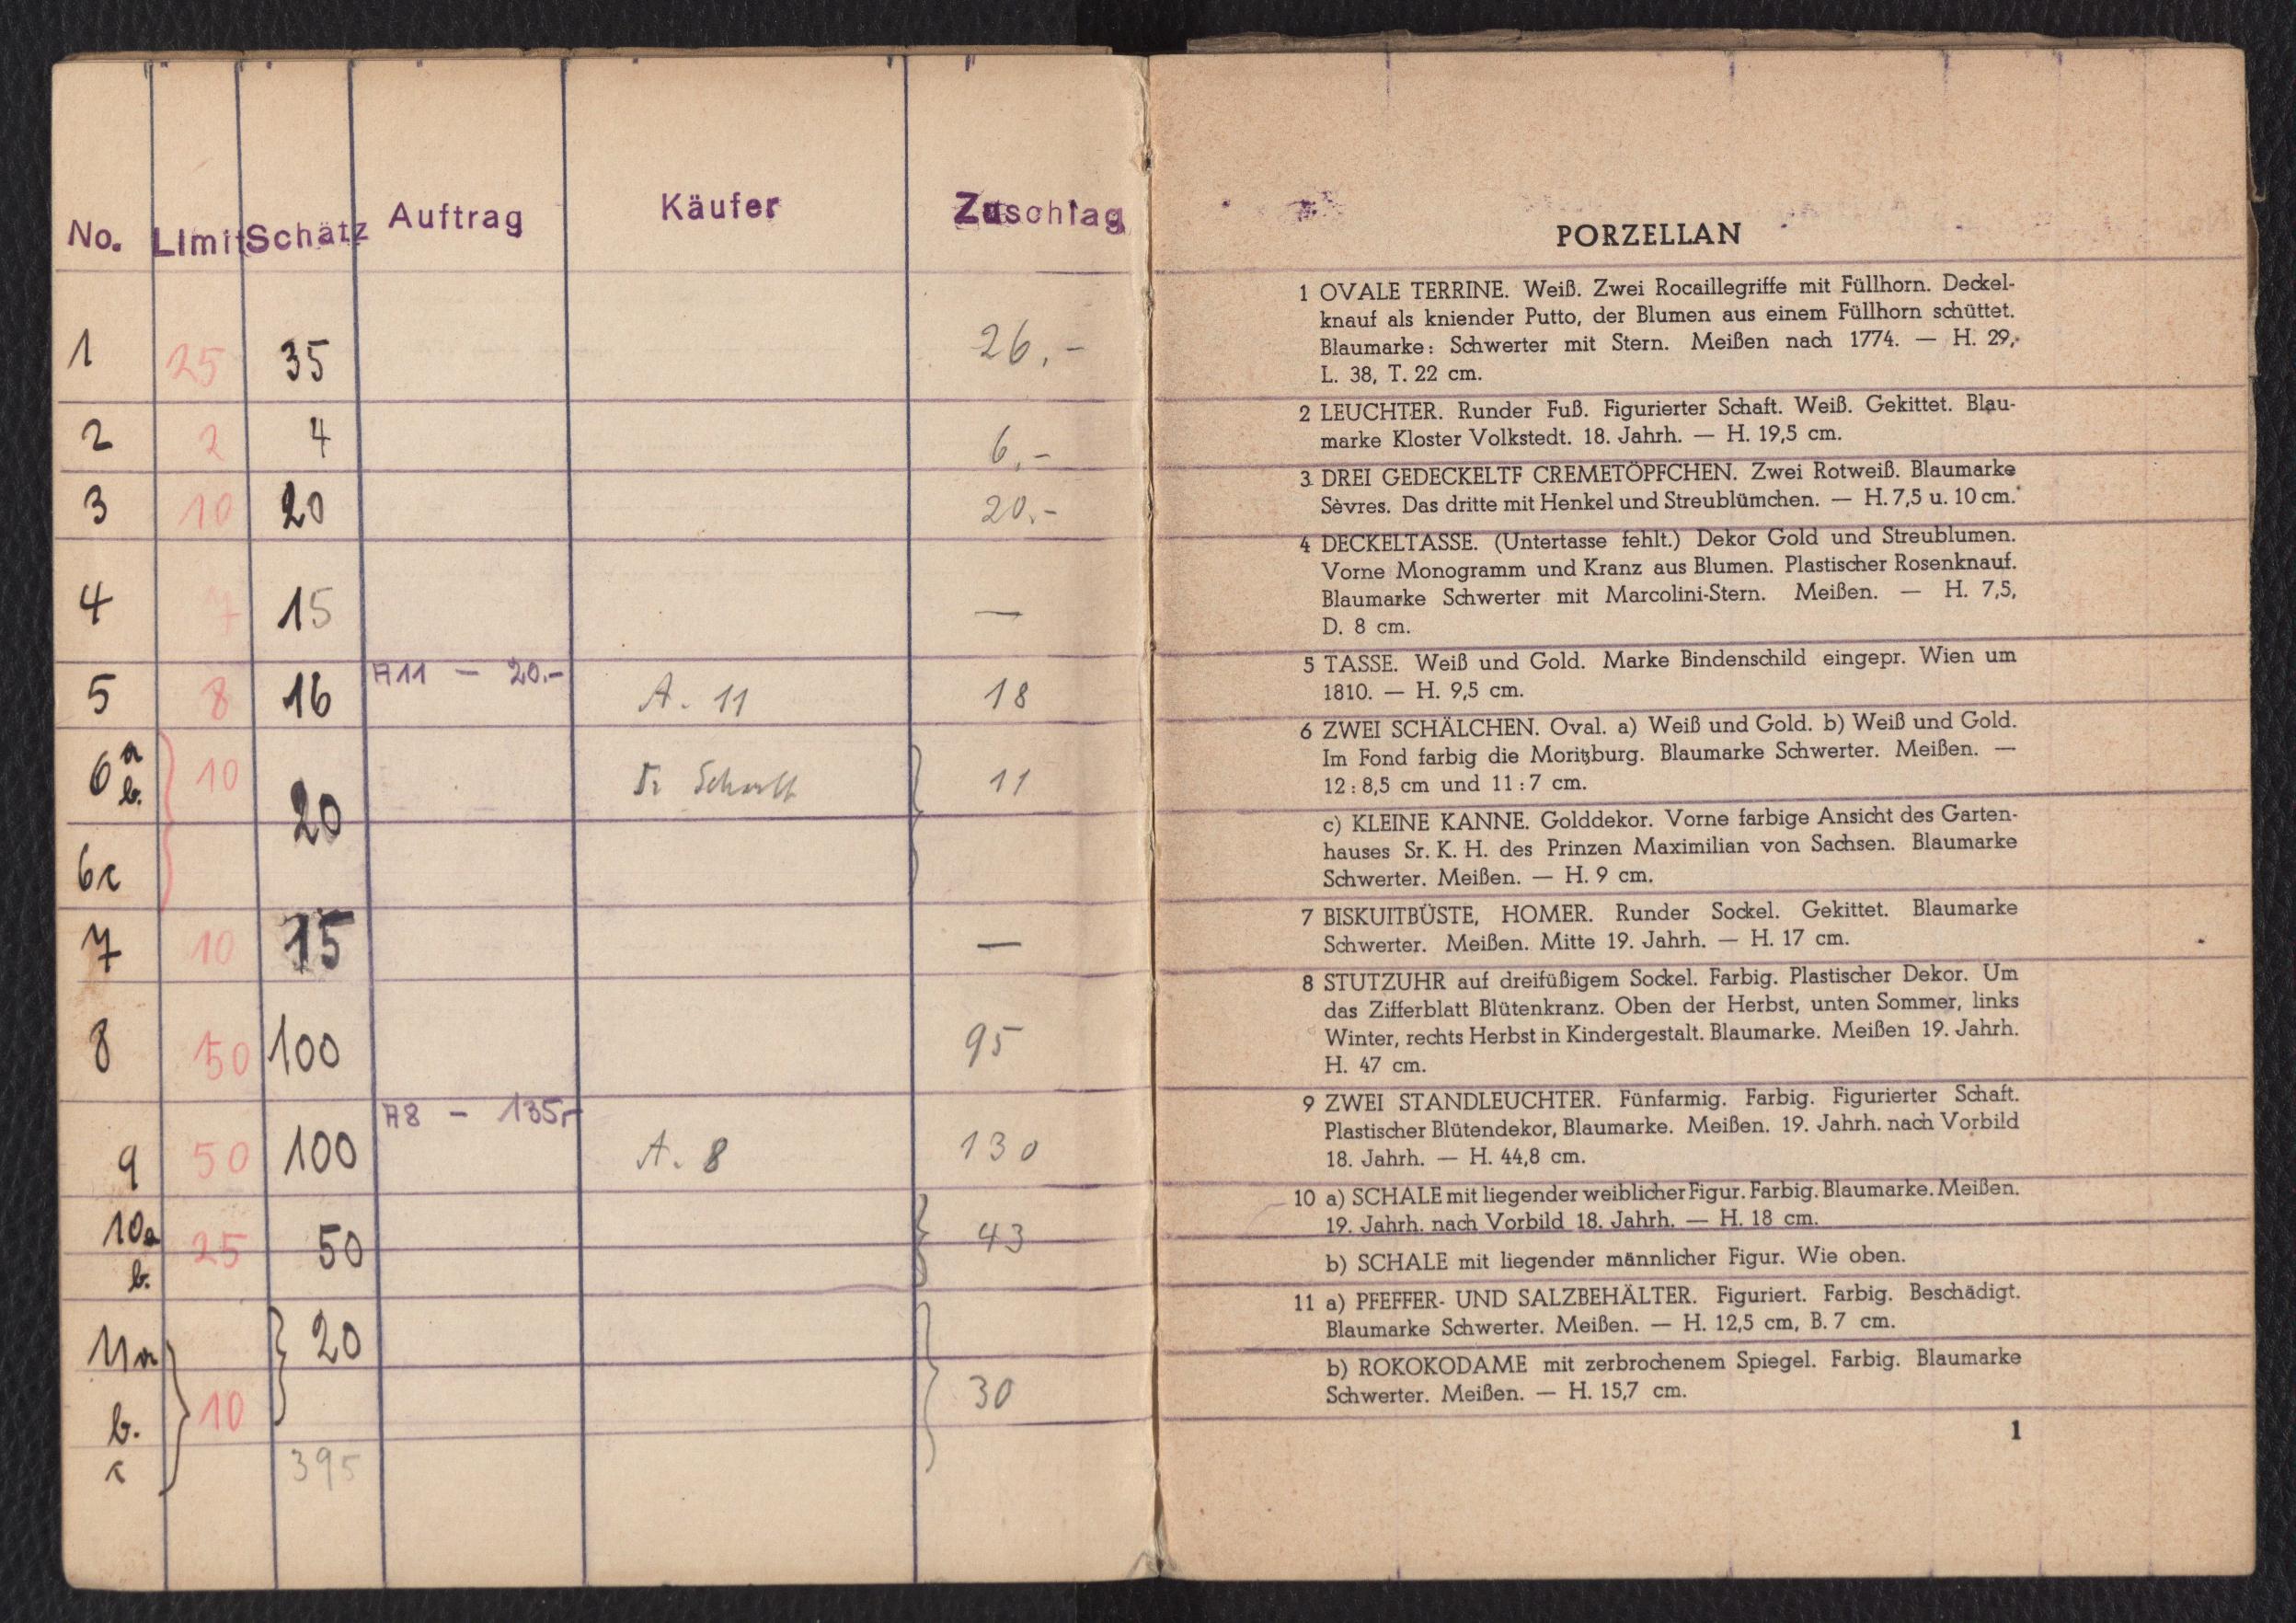 No. Limit Schätz Auftrag Käufer Zuschlag
1 25 35 26.-
2 2 4 6.-
3 10 20 20.-
4 7 15 —
5 8 16 A11 - 20.- A. 11 18
6 a b. 10 20 11
6c
7 10 15 —
8 50 100 95
9 50 100 A8 - 135,- A. 8 130
10a 25 50 43
b.
11a 20
b. 10 30
c 395
PORZELLAN
1 OVALE TERRINE. Weiß. Zwei Rocaillegriffe mit Füllhorn. Deckel-
knauf als kniender Putto, der Blumen aus einem Füllhorn schüttet.
Blaumarke: Schwerter mit Stern. Meißen nach 1774. — H. 29,
L. 38, T. 22 cm.
2 LEUCHTER. Runder Fuß. Figurierter Schaft. Weiß. Gekittet. Blau-
marke Kloster Volkstedt. 18. Jahrh. — H. 19,5 cm.
3 DREI GEDECKELTF CREMETÖPFCHEN. Zwei Rotweiß. Blaumarke
Sèvres. Das dritte mit Henkel und Streublümchen. — H. 7,5 u. 10 cm.
4 DECKELTASSE. (Untertasse fehlt.) Dekor Gold und Streublumen.
Vorne Monogramm und Kranz aus Blumen. Plastischer Rosenknauf.
Blaumarke Schwerter mit Marcolini-Stern. Meißen. — H. 7,5,
D. 8 cm.
5 TASSE. Weiß und Gold. Marke Bindenschild eingepr. Wien um
1810. — H. 9,5 cm.
6 ZWEI SCHÄLCHEN. Oval. a) Weiß und Gold. b) Weiß und Gold.
Im Fond farbig die Moritzburg. Blaumarke Schwerter. Meißen. —
12 : 8,5 cm und 11 : 7 cm.
c) KLEINE KANNE. Golddekor. Vorne farbige Ansicht des Garten-
hauses Sr. K. H. des Prinzen Maximilian von Sachsen. Blaumarke
Schwerter. Meißen. — H. 9 cm.
7 BISKUITBÜSTE, HOMER. Runder Sockel. Gekittet. Blaumarke
Schwerter. Meißen. Mitte 19. Jahrh. — H. 17 cm.
8 STUTZUHR auf dreifüßigem Sockel. Farbig. Plastischer Dekor. Um
das Zifferblatt Blütenkranz. Oben der Herbst, unten Sommer, links
Winter, rechts Herbst in Kindergestalt. Blaumarke. Meißen 19. Jahrh.
H. 47 cm.
9 ZWEI STANDLEUCHTER. Fünfarmig. Farbig. Figurierter Schaft.
Plastischer Blütendekor, Blaumarke. Meißen. 19. Jahrh. nach Vorbild
18. Jahrh. — H. 44,8 cm.
10 a) SCHALE mit liegender weiblicher Figur. Farbig. Blaumarke. Meißen.
19. Jahrh. nach Vorbild 18. Jahrh. — H. 18 cm.
b) SCHALE mit liegender männlicher Figur. Wie oben.
11 a) PFEFFER- UND SALZBEHÄLTER. Figuriert. Farbig. Beschädigt.
Blaumarke Schwerter. Meißen. — H. 12,5 cm, B. 7 cm.
b) ROKOKODAME mit zerbrochenem Spiegel. Farbig. Blaumarke
Schwerter. Meißen. — H. 15,7 cm.
1